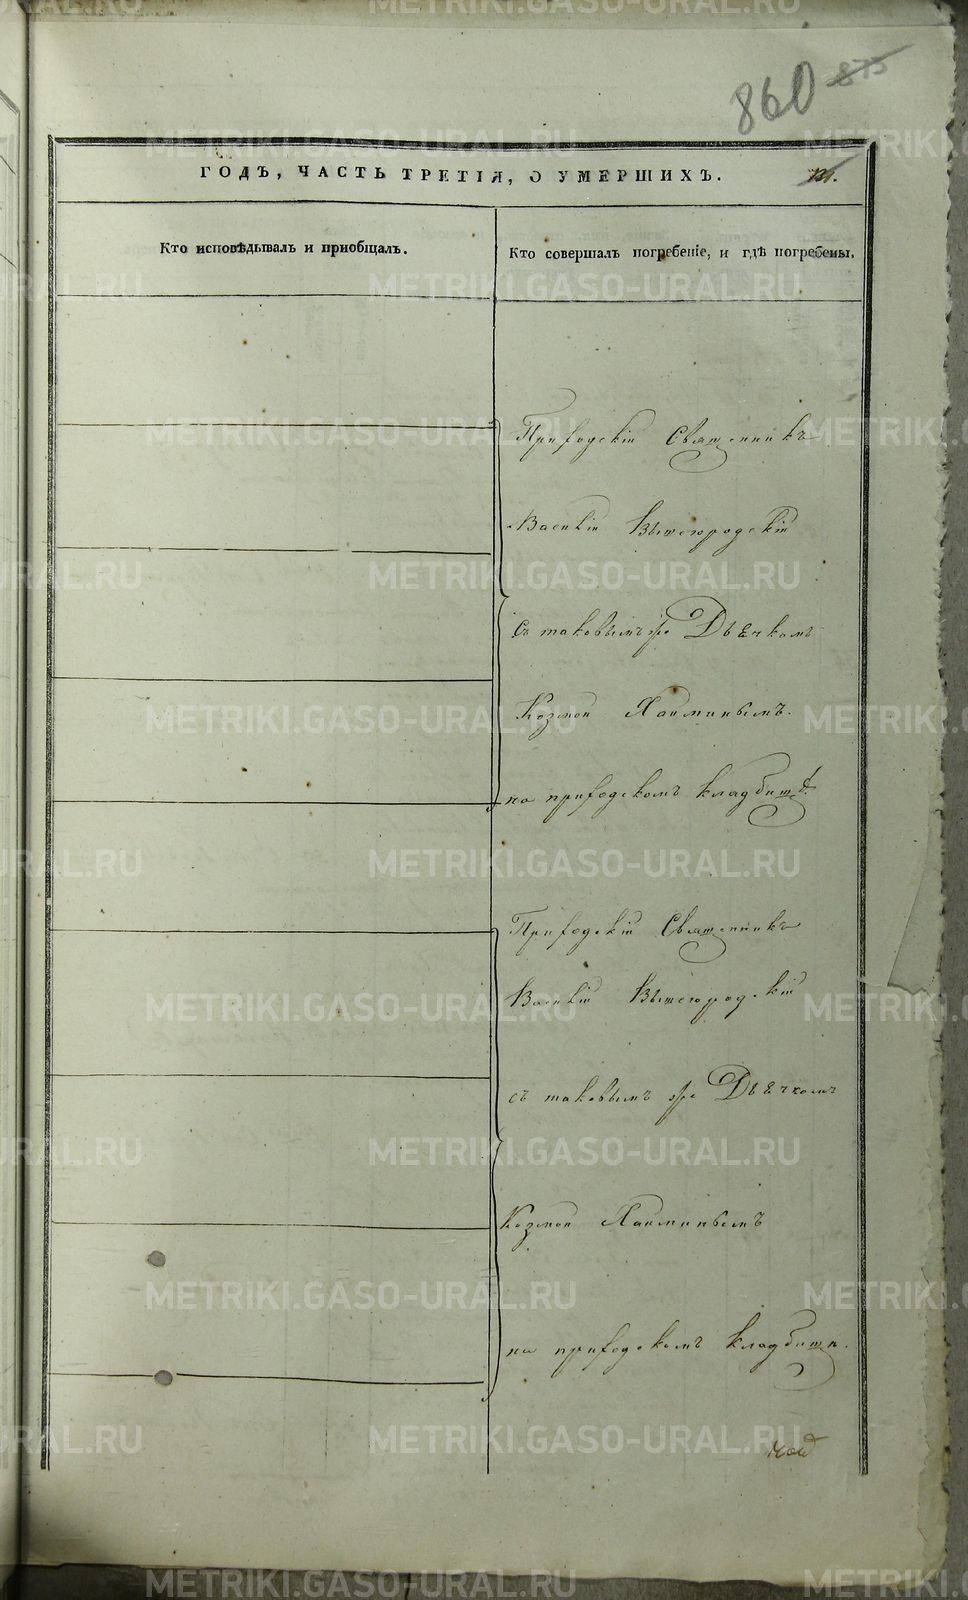 860 875
ГОДЪ, ЧАСТЬ ТРЕТІЯ, О УМЕРШИХЪ.
Кто исповѣдывалъ и пріобщалъ.
Кто совершалъ погребеніе, и гдѣ погребены.
Приходскій Священникъ
Василій Вышегородскій
съ таковымъ же Дьячкомъ
Козмой
на приходскомъ кладбищѣ.
Приходскій Священникъ
Василій Вышегородскій
съ таковымъ же Дьячкомъ
Козмой
на приходскомъ кладбищѣ.
METRIKI.GASO-URAL.RU